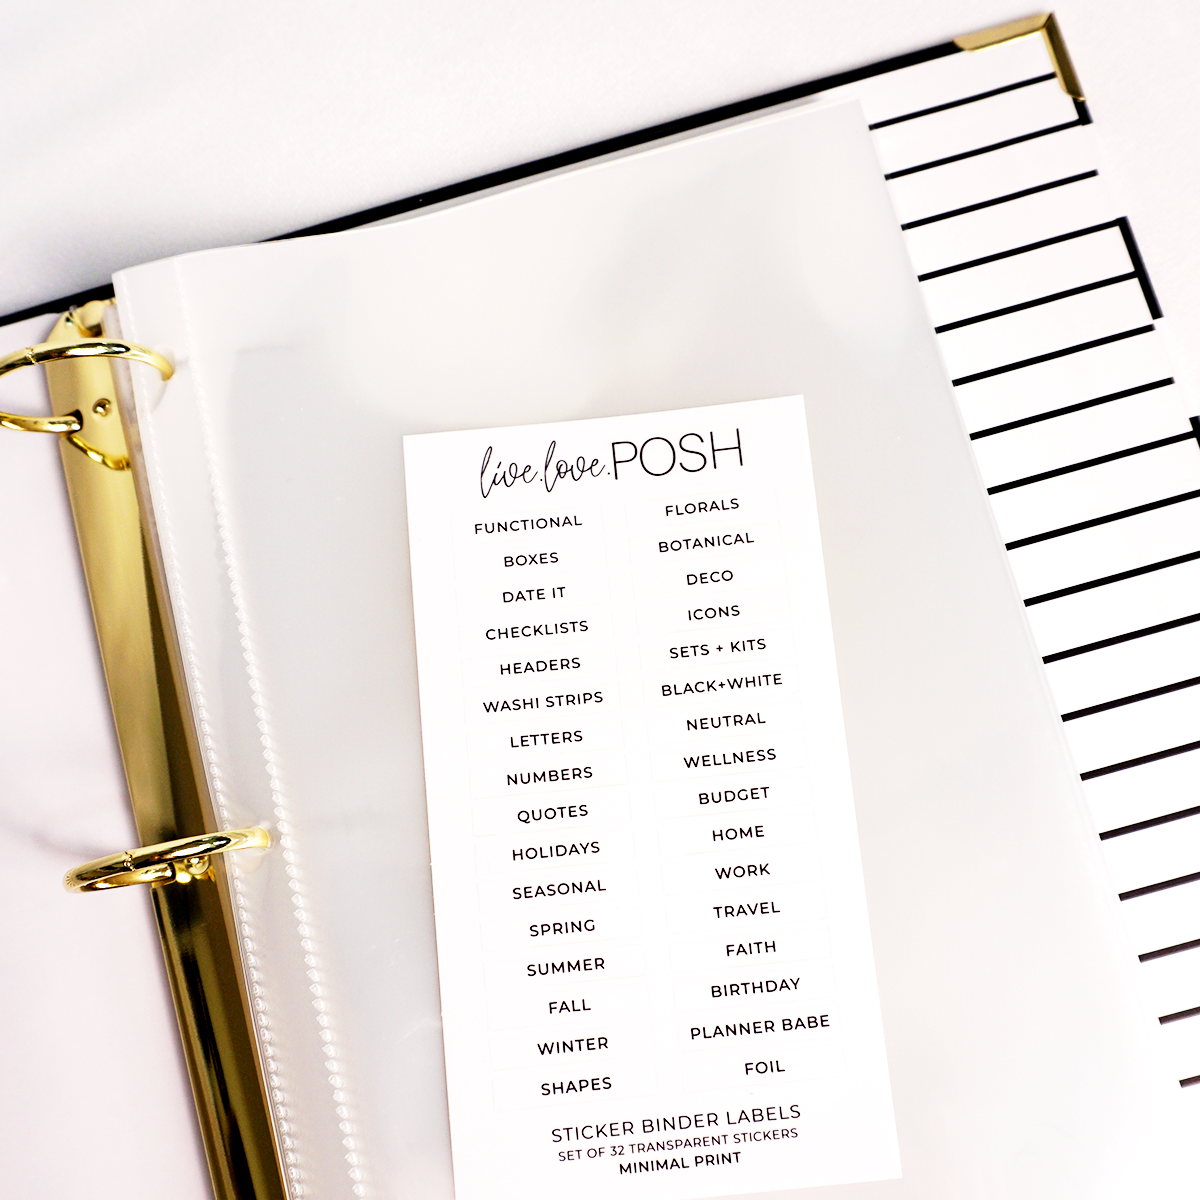 live.love.POSH
FUNCTIONAL
BOXES
DATE IT
CHECKLISTS
HEADERS
WASHI STRIPS
LETTERS
NUMBERS
QUOTES
HOLIDAYS
SEASONAL
SPRING
SUMMER
FALL
WINTER
SHAPES
FLORALS
BOTANICAL
DECO
ICONS
SETS + KITS
BLACK+WHITE
NEUTRAL
WELLNESS
BUDGET
HOME
WORK
TRAVEL
FAITH
BIRTHDAY
PLANNER BABE
FOIL
STICKER BINDER LABELS
SET OF 32 TRANSPARENT STICKERS
MINIMAL PRINT